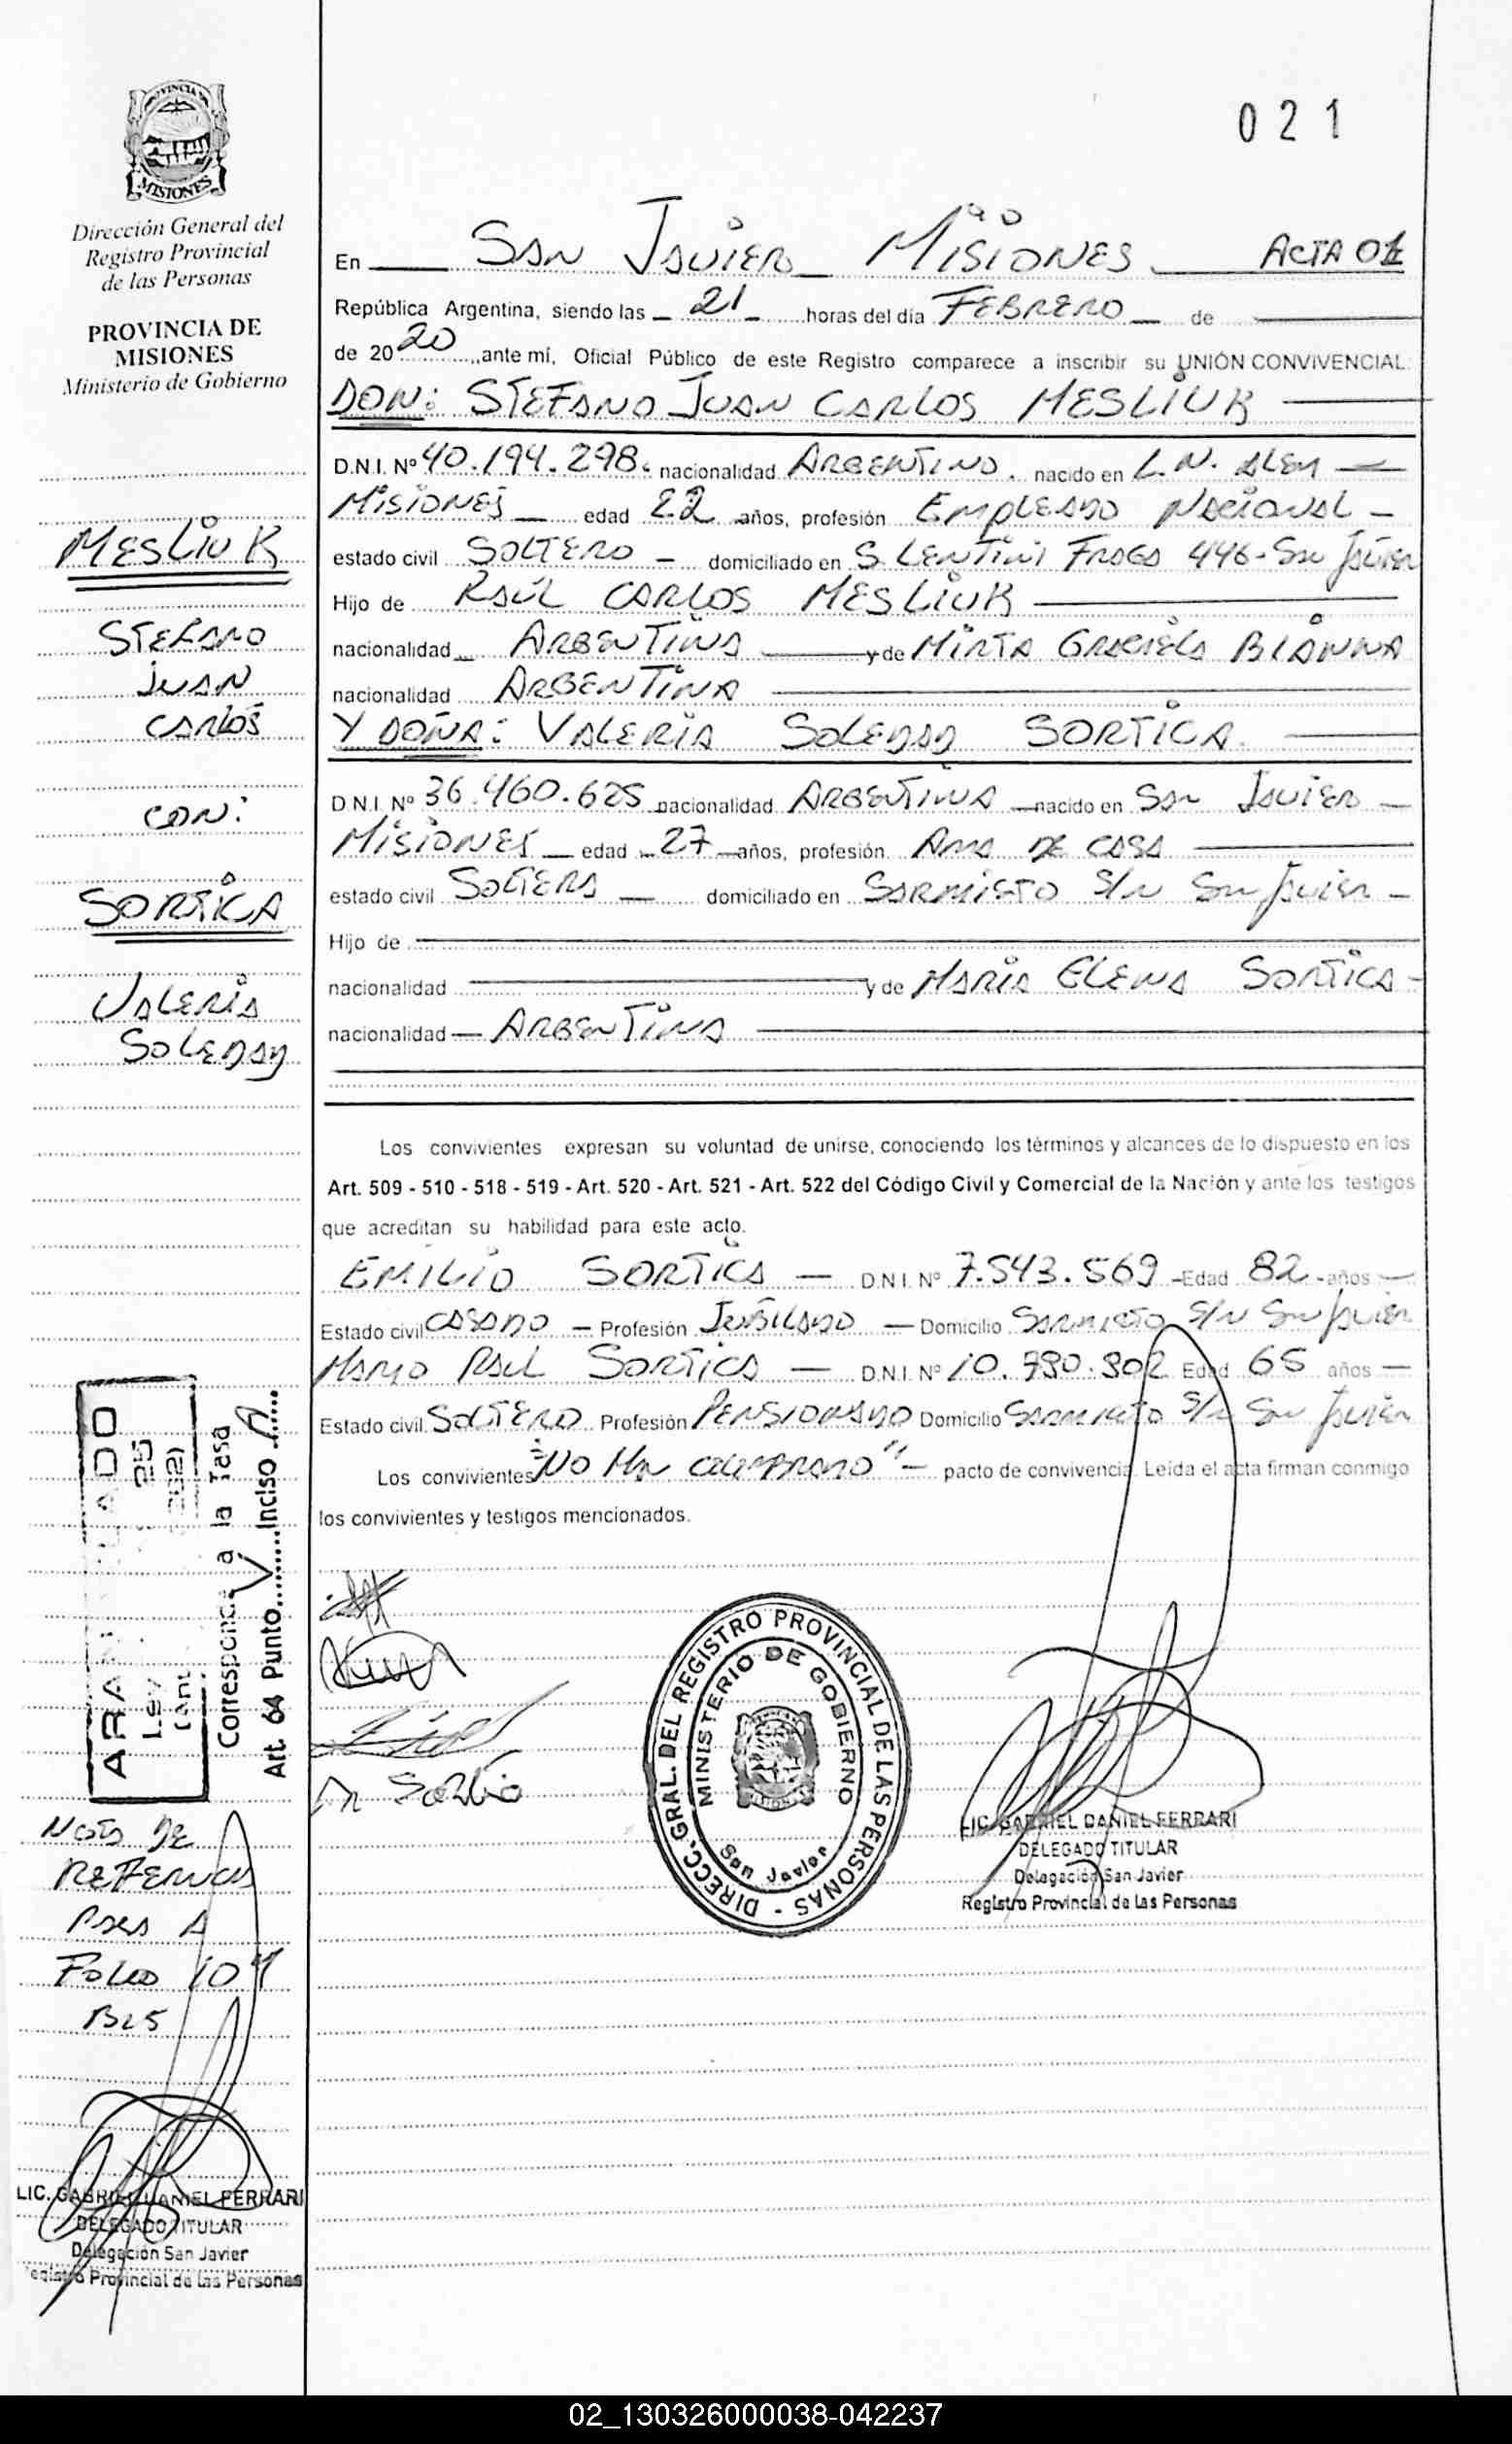 021
PROVINCIA DE
MISIONES
Dirección General del
Registro Provincial
de las Personas
PROVINCIA DE
MISIONES
Ministerio de Gobierno
En SAN JAVIER MISIONES ACTA 01
República Argentina, siendo las 21 horas del día FEBRERO de
de 2020, ante mí, Oficial Público de este Registro comparece a inscribir su UNIÓN CONVIVENCIAL:
DON: STEFANO JUAN CARLOS MESLIUK
D.N.I. Nº 40.194.298. nacionalidad ARGENTINO. nacido en L.N. ALEM
MISIONES edad 22 años, profesión EMPLEADO NACIONAL
estado civil SOLTERO domiciliado en S. LENTINI FRAGA 446 - San Javier
Hijo de RAÚL CARLOS MESLIUK
nacionalidad ARGENTINA y de MIRTA GRACIELA BIANNA
nacionalidad ARGENTINA
Y DOÑA: VALERIA SOLEDAD SORTICA
D.N.I. Nº 36.460.625 nacionalidad ARGENTINA nacido en San JAVIER
MISIONES edad 27 años, profesión AMA DE CASA
estado civil SOLTERA domiciliado en SARMIETO S/N San Javier
Hijo de
nacionalidad y de MARIA ELENA SORTICA
nacionalidad ARGENTINA
Los convivientes expresan su voluntad de unirse, conociendo los términos y alcances de lo dispuesto en los
Art. 509 - 510 - 518 - 519 - Art. 520 - Art. 521 - Art. 522 del Código Civil y Comercial de la Nación y ante los testigos
que acreditan su habilidad para este acto.
EMILIO SORTICA D.N.I. Nº 7.543.569 Edad 82 años
Estado civil CASADO Profesión JUBILADO Domicilio SARMIETO S/N San Javier
MARIO RAUL SORTICA D.N.I. Nº 10.780.802 Edad 65 años
Estado civil SOLTERO Profesión PENSIONADO Domicilio SARMIETO S/N San Javier
Los convivientes "NO HAN CELEBRADO" pacto de convivencia. Leída el acta firman conmigo
los convivientes y testigos mencionados.
DIRECC. GRAL. DEL REGISTRO PROVINCIAL DE LAS PERSONAS -
MINISTERIO DE GOBIERNO
San Javier
LIC. GABRIEL DANIEL FERRARI
DELEGADO TITULAR
Delegación San Javier
Registro Provincial de las Personas
MESLIUK
STEFANO
JUAN
CARLOS
CON:
SORTICA
VALERIA
SOLEDAD
ARAN LADO
Ley 25
(Ant.
Corresponde a la Tasa
Art. 64 Punto V Inciso A
NOTA DE
REFERNCIA
PASA A
FOLIO 104
B25
LIC. GABRIEL DANIEL FERRARI
DELEGADO TITULAR
Delegación San Javier
Registro Provincial de las Personas
02_130326000038-042237